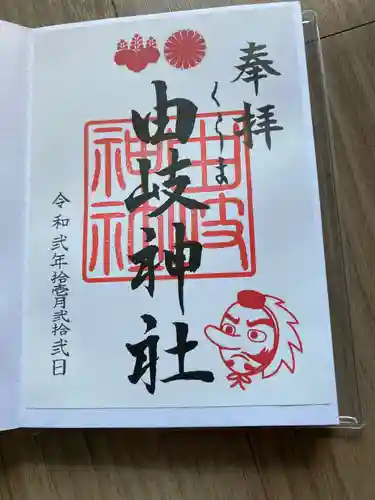 奉拝
くらま
由岐神社
由岐
神社
令和弐年拾壱月弐拾弐日